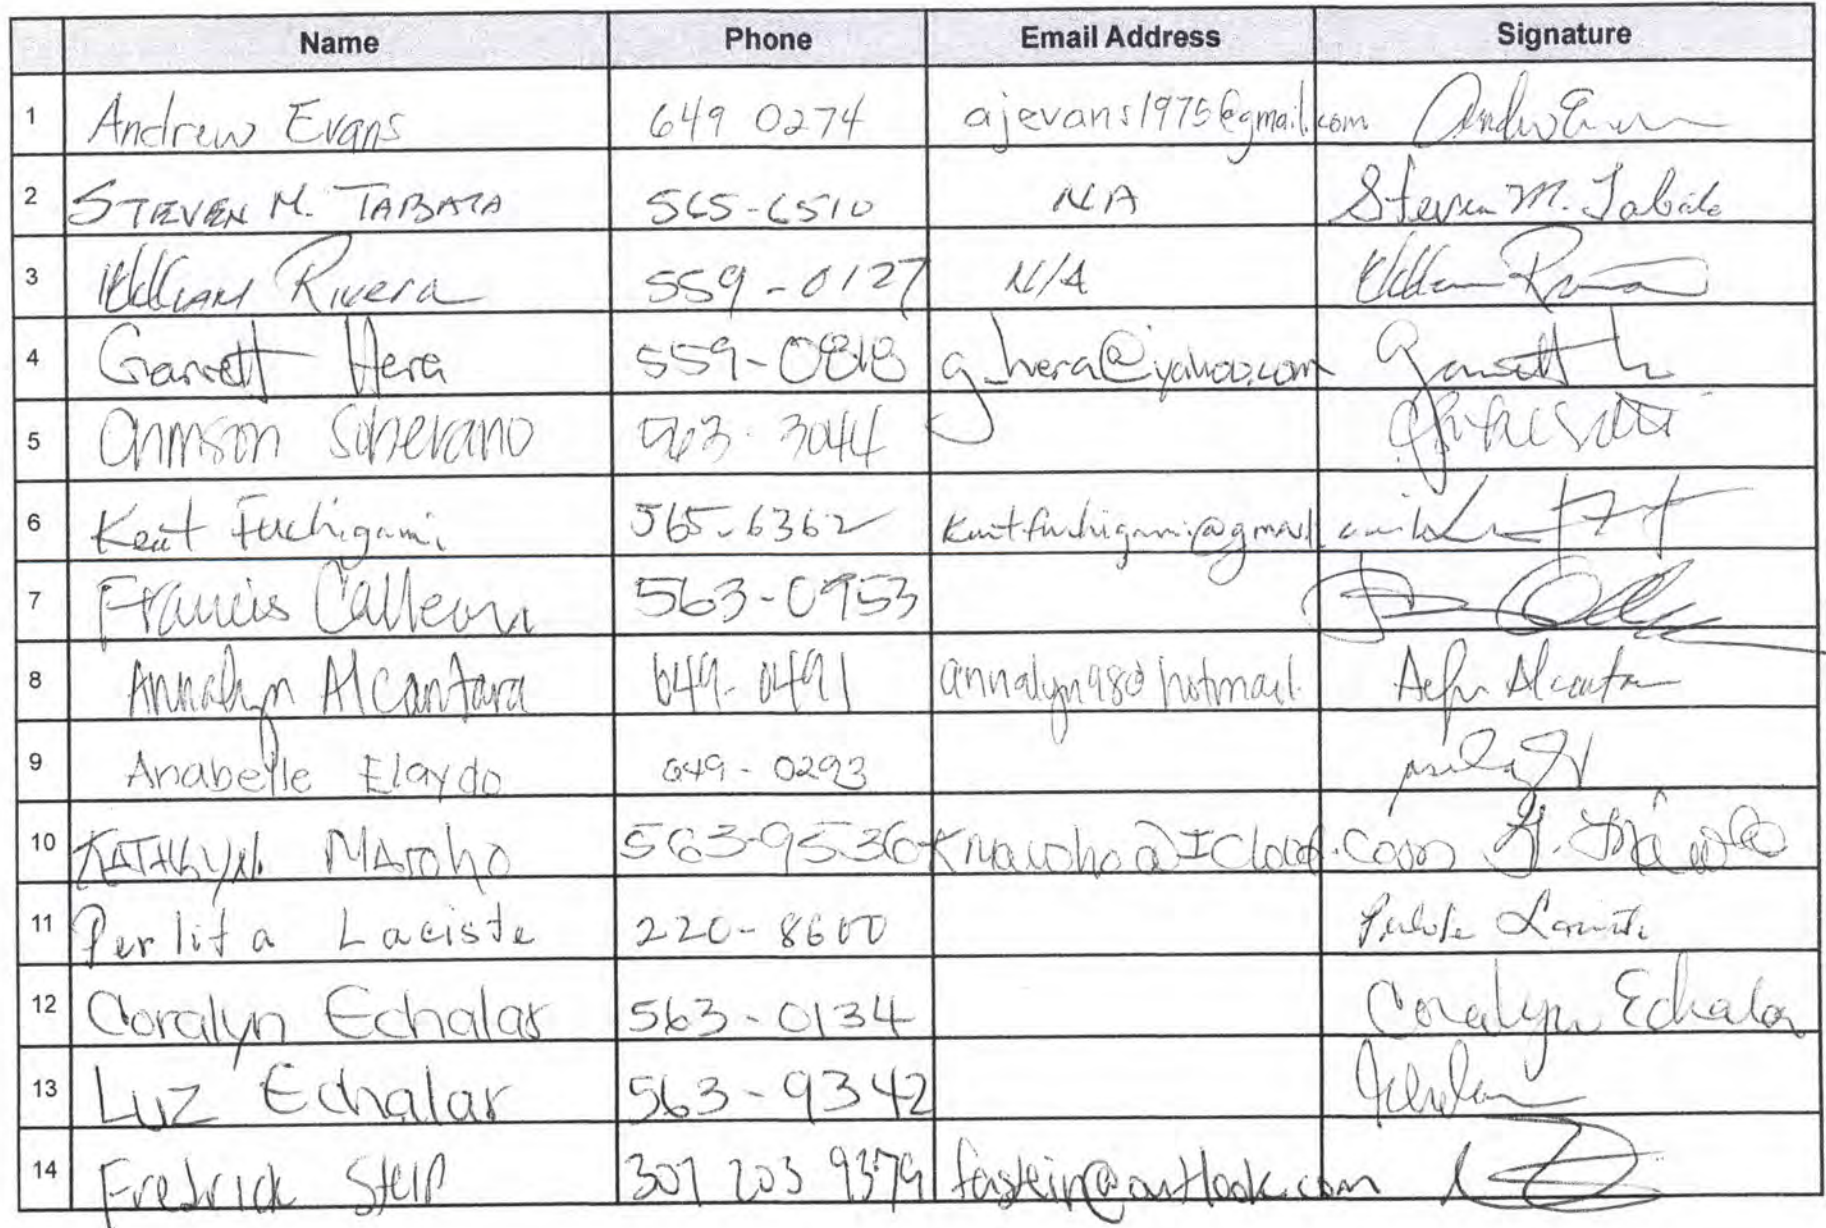 Name Phone Email Address Signature
1 Andrew Evans 649 0274 ajevans1975@gmail.com
2 STEVEN M. TABATA 565-6510 NA Steven M. Tabata
3 William Rivera 559-0127 N/A
4 Garrett Hera 559-0818 g_hera@yahoo.com
5 563-3044
6 Kent Fuchigami 565-6362 kentfuchigami@gmail.com
7 Francis 563-0953
8 Annalyn Alcantara 649-0491 annalyn98@hotmail.
9 Anabelle Elaydo 649-0293
10 563-9536
11 Perlita Laciste 220-8600 Perlita Laciste
12 Coralyn Echalar 563-0134 Coralyn Echalar
13 Luz Echalar 563-9342
14 Fredrick 307 203 9379 fastein@outlook.com